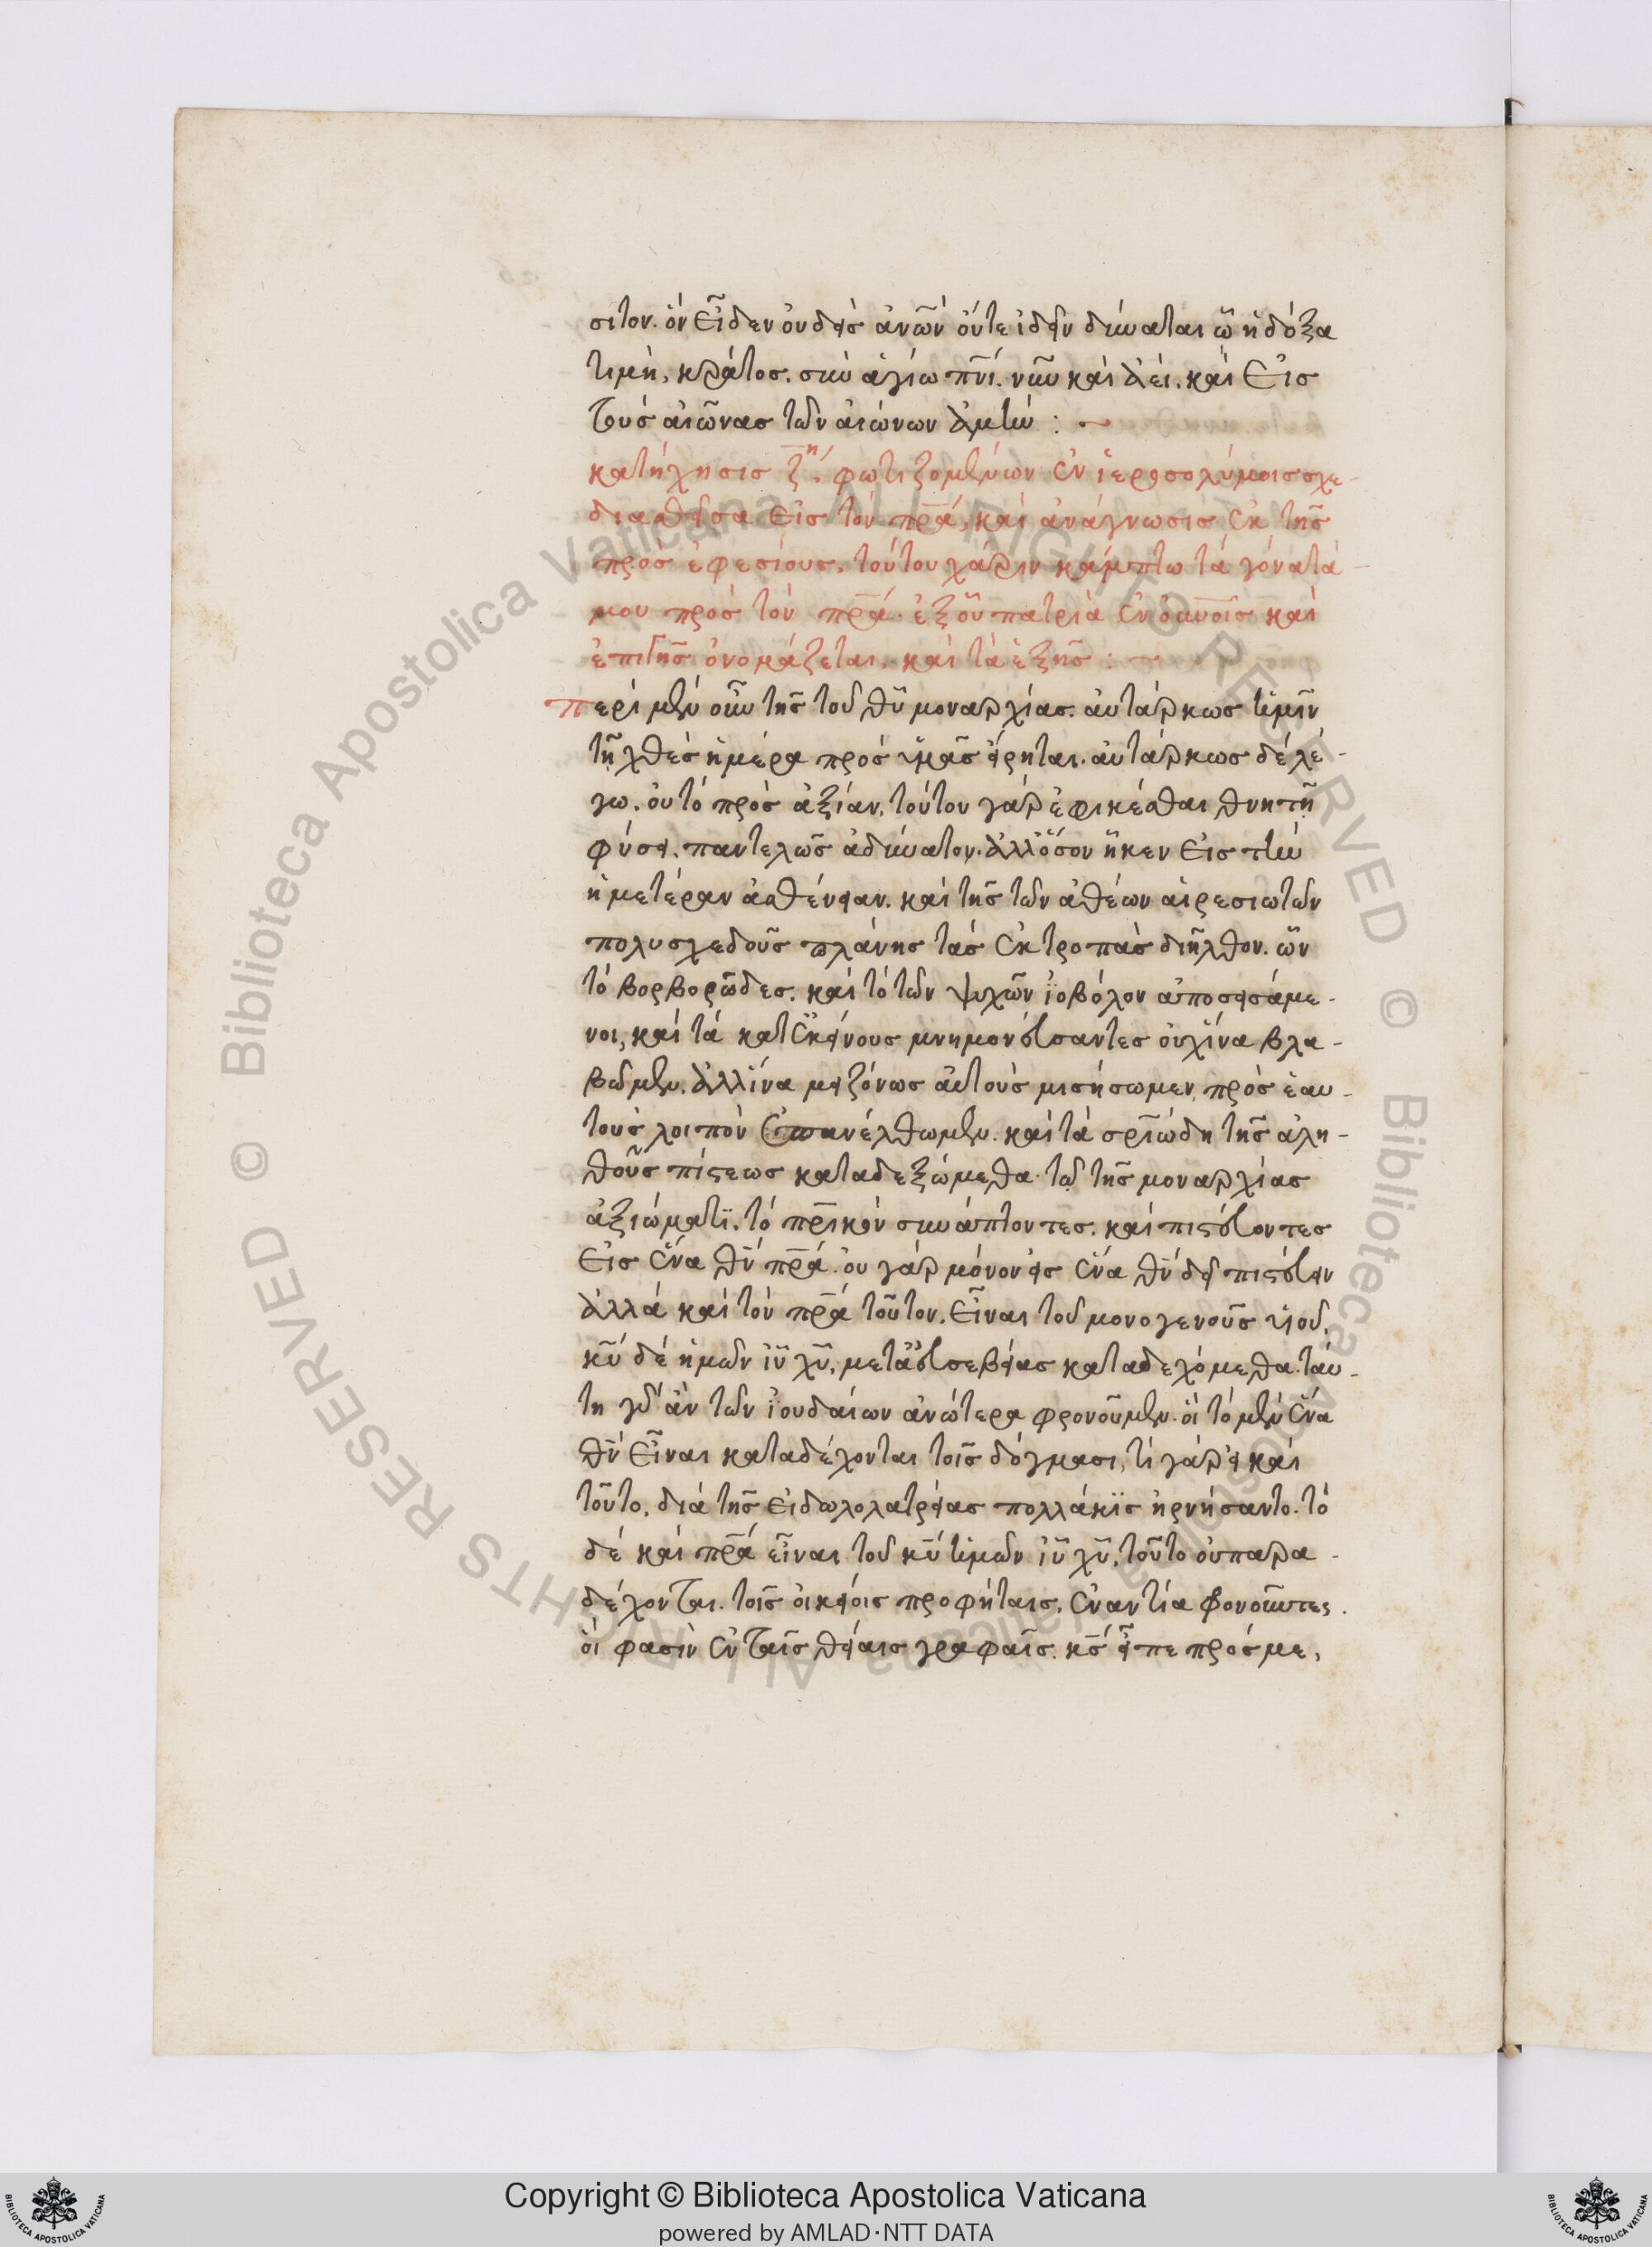 σιτον. ὃν εἶδεν οὐδεὶς ἀνων οὔτε ἰδεῖν δύναται ὧ ἡ δόξα
τιμὴ, κράτος. σὺν ἁγίω πνι. νῦν καὶ ἀεὶ. καὶ εἰς
τοὺς αἰῶνας τῶν αἰώνων ἀμήν : ~
κατήχησις ζ'η. φωτιζομένων ἐν ἱεροσολύμοις σχε-
διασθεῖσα εἰς τὸν πρα, καὶ ἀνάγνωσις ἐκ τῆς
πρὸς ἐφεσίους. τούτου χάριν κάμπτω τὰ γόνατά
μου πρὸς τὸν πρα. ἐξ οὗ πατριὰ ἐν οὐνοῖς καὶ
ἐπι γῆς ὀνομάζεται. καὶ τὰ ἑξῆς : ~
περὶ μὲν οὖν τῆς τοῦ θυ μοναρχίας. αὐτάρκως ἡμῖν
τῆ χθὲς ἡμέρα πρὸς ὑμᾶς εἴρηται. αὐτάρκως δὲ λέ-
γω. οὐ τὸ πρὸς ἀξίαν. τούτου γὰρ ἐφικέσθαι θνητῆ
φύσει. παντελῶς ἀδύνατον. ἀλλ' ὅσον ἧκεν εἰς τὴν
ἡμετέραν ἀσθένειαν. καὶ τῆς τῶν ἀθέων αἱρεσιωτῶν
πολυσχεδοῦς πλάνης τὰς ἐκτροπὰς διῆλθον. ὧν
τὸ βορβορῶδες. καὶ τὸ τῶν ψυχῶν ἰοβόλον ἀποσεισάμε-
νοι, καὶ τὰ κατ' ἐκείνους μνημονεύσαντες οὐχ ἵνα βλα-
βῶμεν. ἀλλ' ἵνα μειζόνως αὐτοὺς μισήσωμεν. πρὸς ἑαυ-
τοὺς λοιπὸν ἐπανέλθωμεν. καὶ τὰ σριώδη τῆς ἀλη-
θοῦς πίστεως καταδεξώμεθα. τῶ τῆς μοναρχίας
ἀξιώματϊ. τὸ πρικὸν συνάπτοντες. καὶ πιστεύοντες
εἰς ἕνα θν πρα. οὐ γὰρ μόνον εἰς ἕνα θν δεῖ πιστεύειν
ἀλλὰ καὶ τὸν πρα τοῦτον. εἶναι τοῦ μονογενοῦς υἱοῦ.
κυ δὲ ἡμῶν ιυ χυ. μετ' εὐσεβείας καταδεχόμεθα. ταύ-
τη γὰρ ἂν τῶν ἰουδαίων ἀνώτερα φρονοῦμεν. οἱ τὸ μὲν ἕνα
θν εἶναι καταδέχονται τοῖς δόγμασι, τί γὰρ εἰ καὶ
τοῦτο. διὰ τῆς εἰδωλολατρείας πολλάκϊς ἠρνήσαντο. τὸ
δὲ καὶ πρα εἶναι τοῦ κυ ἡμῶν ιυ χυ. τοῦτο οὐ παρα-
δέχονται. τοῖς οἰκείοις προφήταις. ἐναντία φρονοῦντες.
οἵ φασὶν ἐν ταῖς θείαις γραφαῖς. κς εἶπε πρός με,